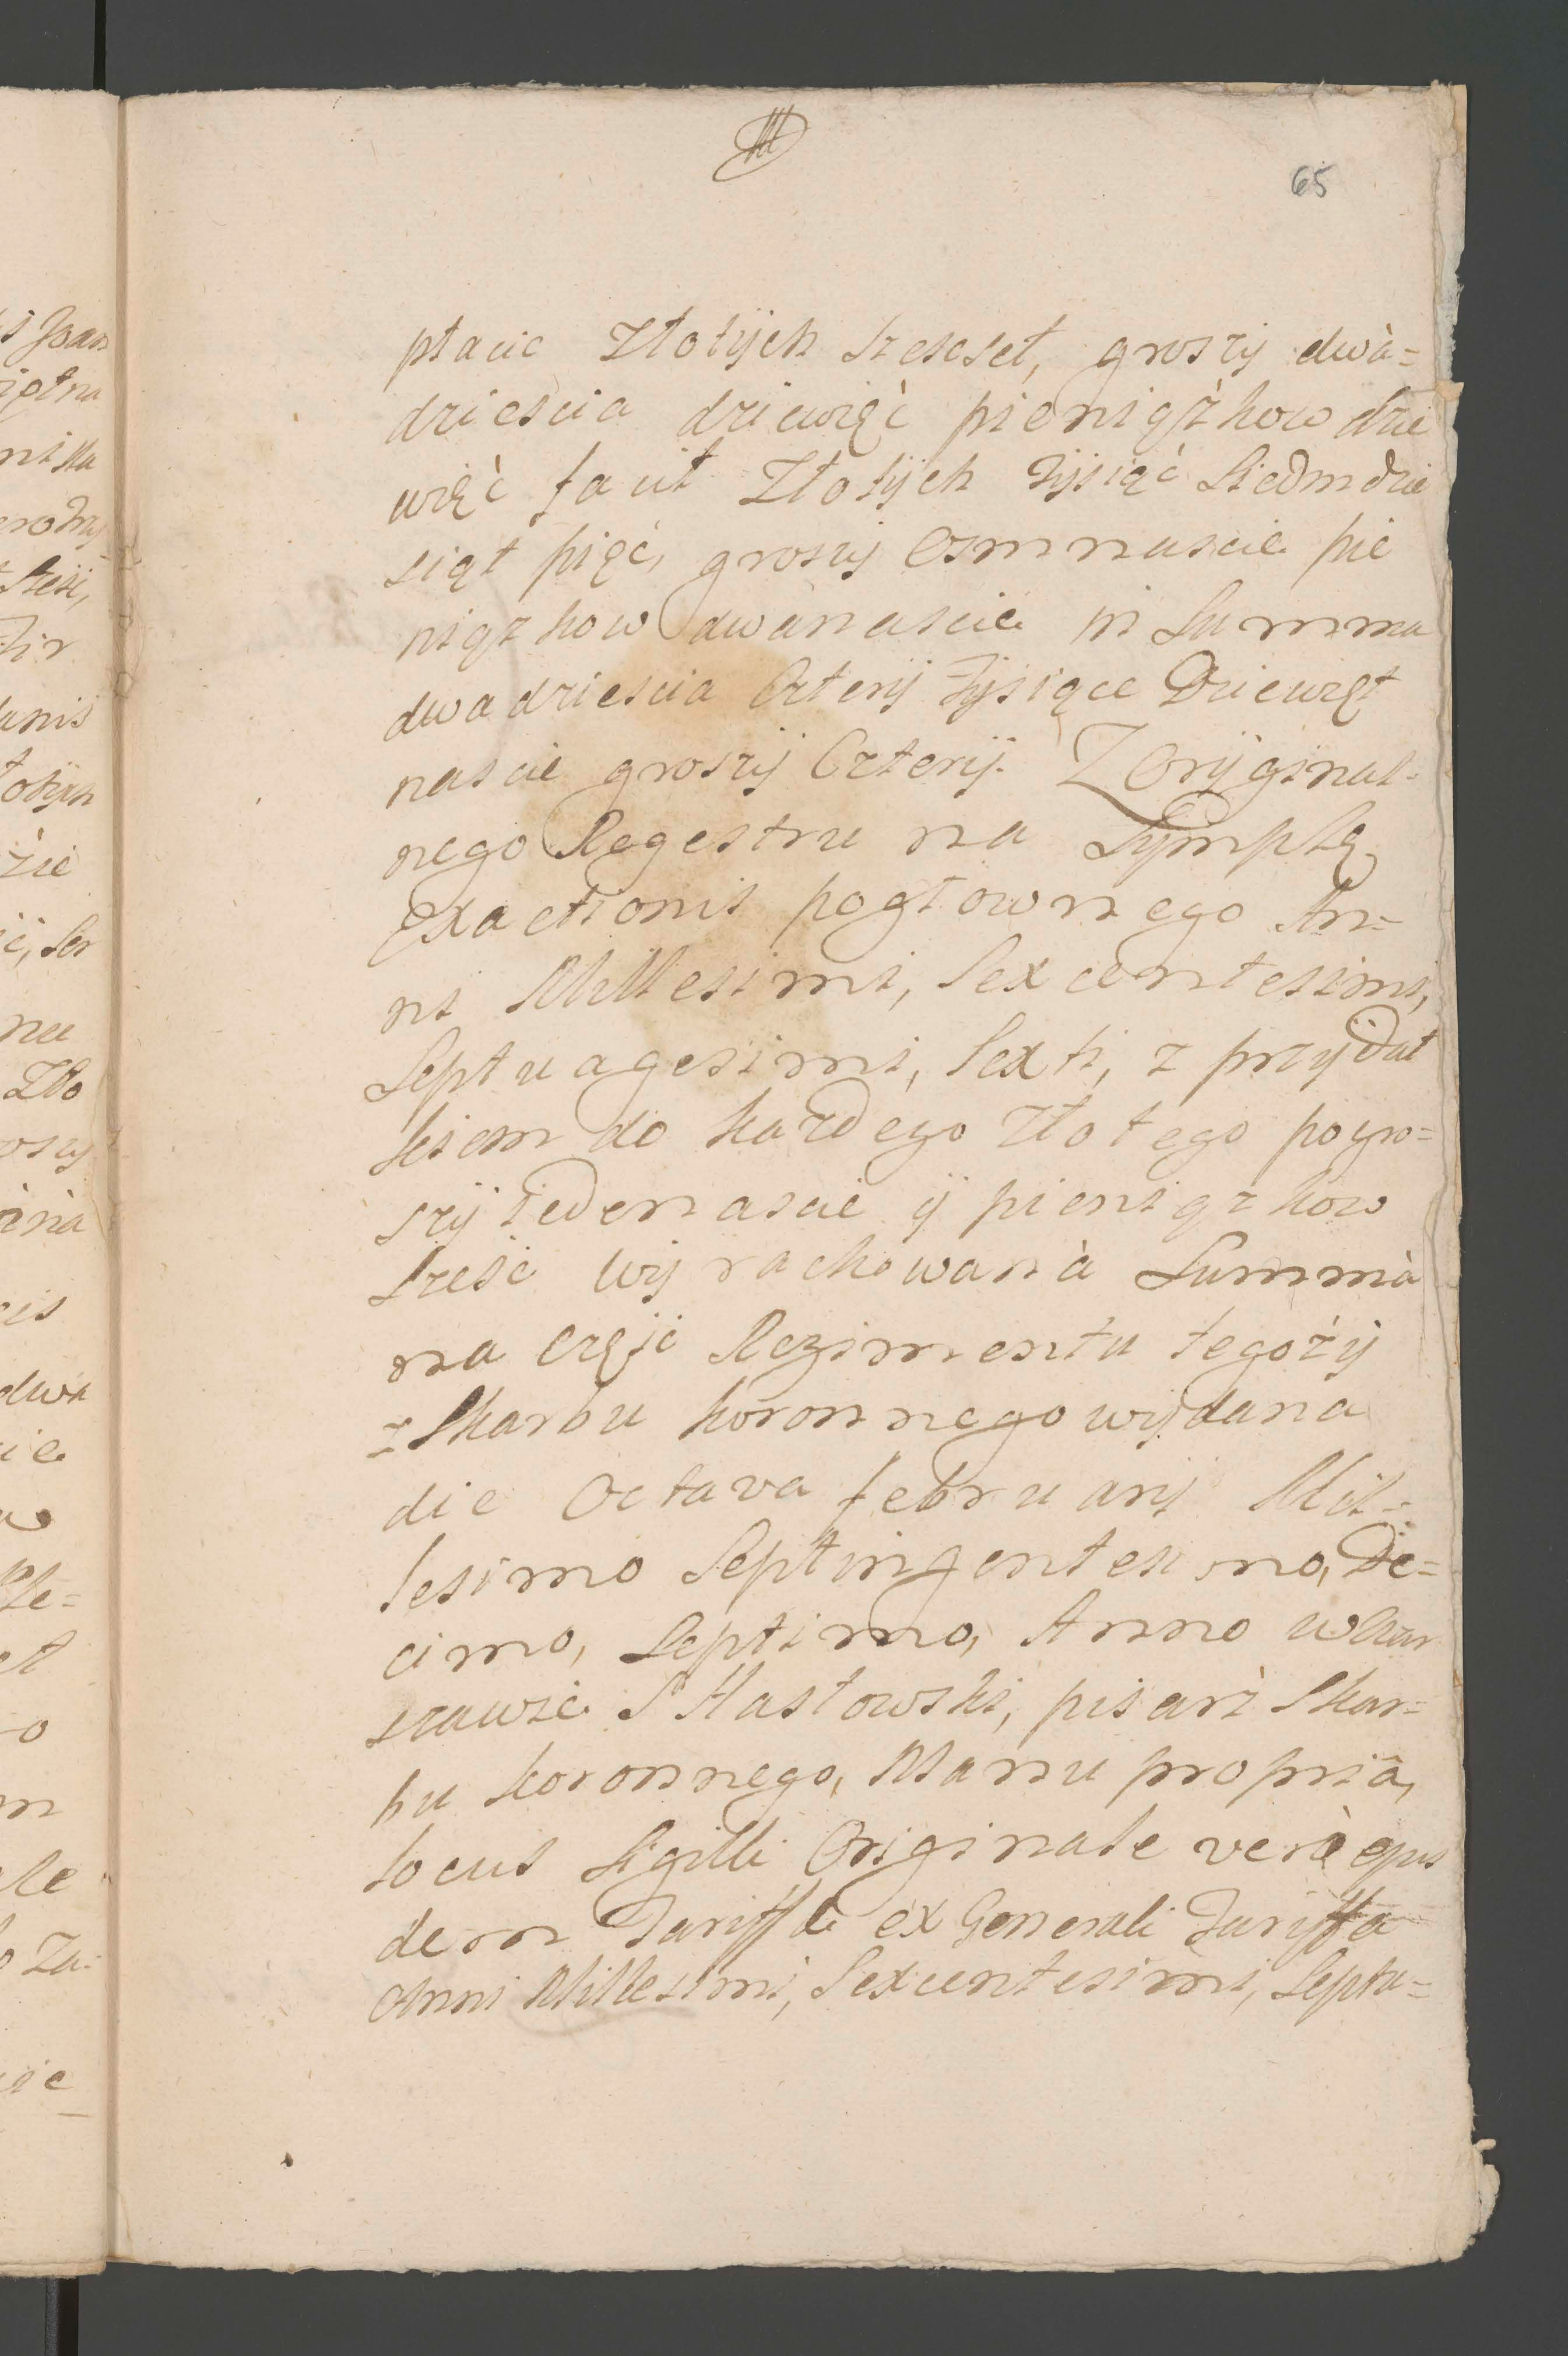 65
płacic Złotÿch szescset, groszÿ dwà=
dziescia dziewięć pieniąźkow dzie
więć facit Złotÿch Tÿsiąć Siedmdzie
siąt pięć, groszÿ Osmnascie pie
niązkow dwanascie in Summa
dwadziescia Czterÿ Tÿsiące Dziewięt
nascie groszÿ Czterÿ. Z Orÿginal-
nego Regestru na Sÿmplę
Exactionis pogłownego An=
ni Millesimi, Sexcentesimi,
Septuagesimi, Sexti, z przÿdat
kiem do kazdego złotego pogro=
szÿ iedenascie ÿ pieniązkow
szesć wÿrachowanà Summà
na częsć Regimentu tegożÿ
z Skarbu koronnego wÿdana
die Octava februarÿ Mil=
lesimo Septingentesimo, De=
cimo, Septimo, Anno wWar
szawie S Hasłowski, pisarż Skar=
bu koronnego, Manu propriâ,
Locus Sigilli Originale verè ejus
dem Tariffæ ex Generali Tariffa
Anni Millesimi, Sexcentesimi, Septu=